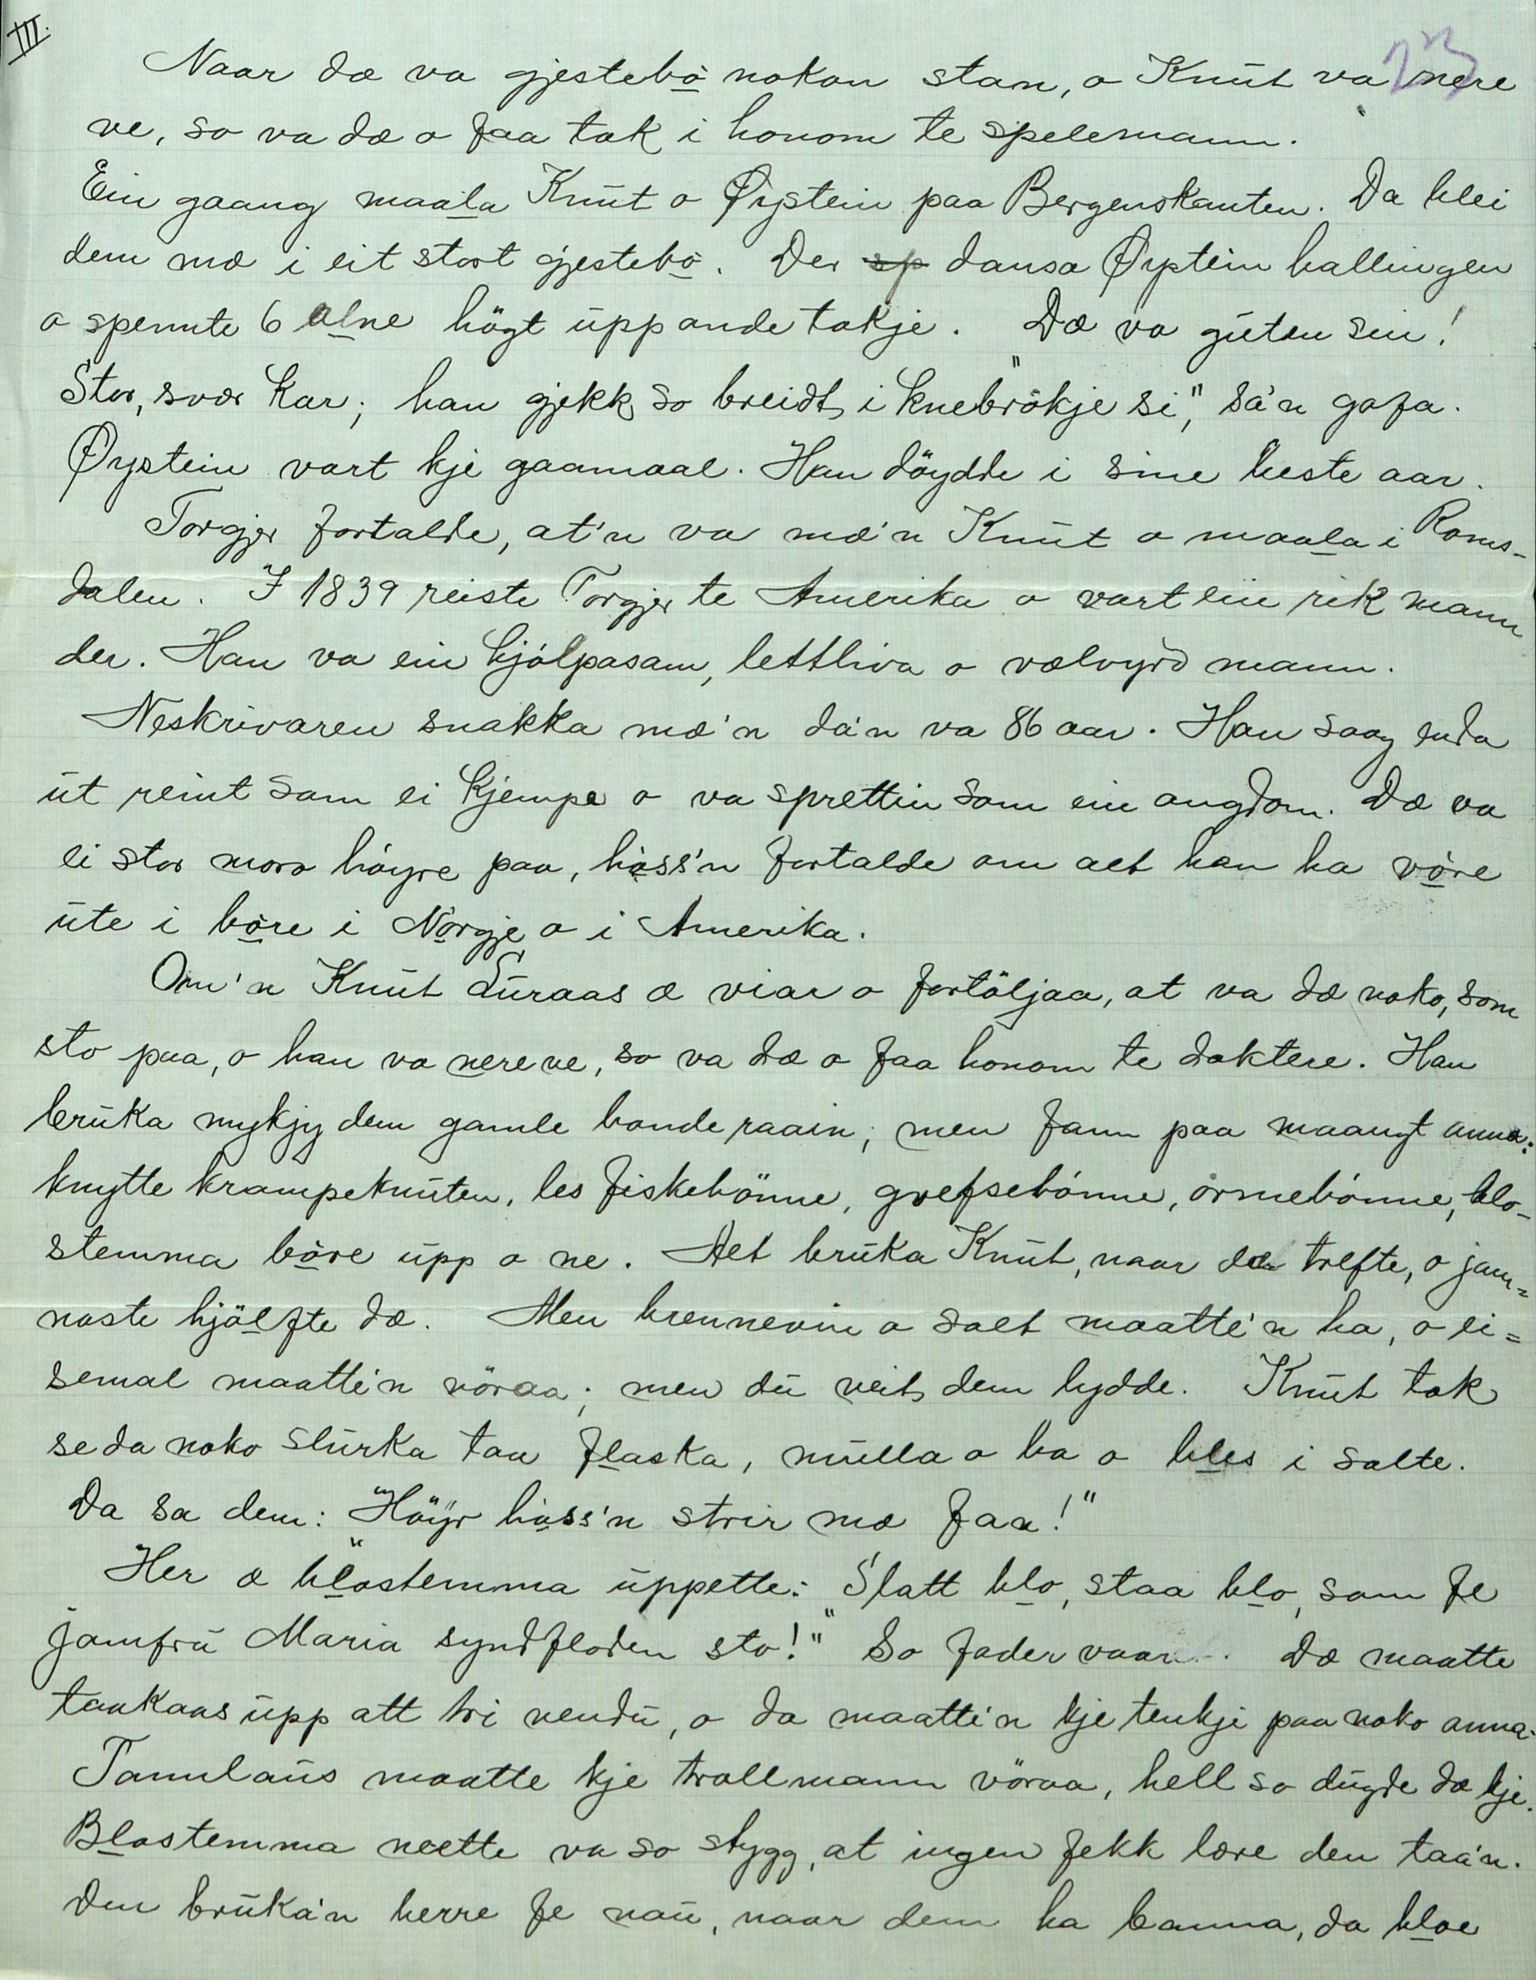 III.
23
Naar dæ va gjestebò nokon stan, o Knut va nere
ve, so va dæ o faa tak i honom te spelemann.
Ein gaang maala Knut o Øystein paa Bergenskanten. Da blei
dem mæ i eit stort gjestebò. Der sp dansa Øystein hallingen
o spennte 6 alne högt upp ande takje. Dæ va guten sin!
Stor, svær kar; han gjekk so breidt i "knebrókje si," sá'n gofa.
Øystein vart kje gaamaal. Han döydde i sine beste aar.
Torgjer fortalde, at'n va mæ'n Knut o maala i Roms-
dalen. I 1839 reiste Torgjer te Amerika o vart ein rik mann
der. Han va ein hjólpasam, lettliva o vælvyrd mann.
Neskrivaren snakka mæ'n dá'n va 86 aar. Han saag enda
ut reint som ei kjempe o va sprettin som ein ongdom. Dæ va
ei stor moro höyre paa, hoss'n fortalde om alt han ha vöre
ute i bòre i Norgje o i Amerika.
Om'n Knut Suraas æ viar o fortöljaa, at va dæ noko, som
sto paa, o han va nere ve, so va dæ o faa honom te doktere. Han
bruka mykjy dem gamle bonderaain; men fann paa maangt anna:
knytte krampeknuten, les fiskebönne, grefsebónne, órmebónne, blo-
stemma bòre upp o ne. Alt bruka Knut, naar dæ trefte, o jam-
naste hjälfte dæ. Men brennevin o salt maatte'n ha, o ei=
semal maatte'n vöraa; men du veit dem lydde. Knut tok
se da noko slurka taa flaska, mulla o ba o bles i salte.
Da sa dem: "Höyr hoss'n strir mæ faa!"
Her æ "blostemma" uppette: "Slatt blo, staa blo, som fe
jomfru Maria syndfloden sto!" So fader vaar. Dæ maatte
taakaas upp att tri vendu, o da maatte'n kje tenkje paa noko anna.
Tannlaus maatte kje trollmann vöraa, hell so dugde dæ kje.
Blostemma neette va so stygg, at ingen fekk lære den taa'n.
Den bruka'n herre fe nau, naar dem ha banna, da bloe